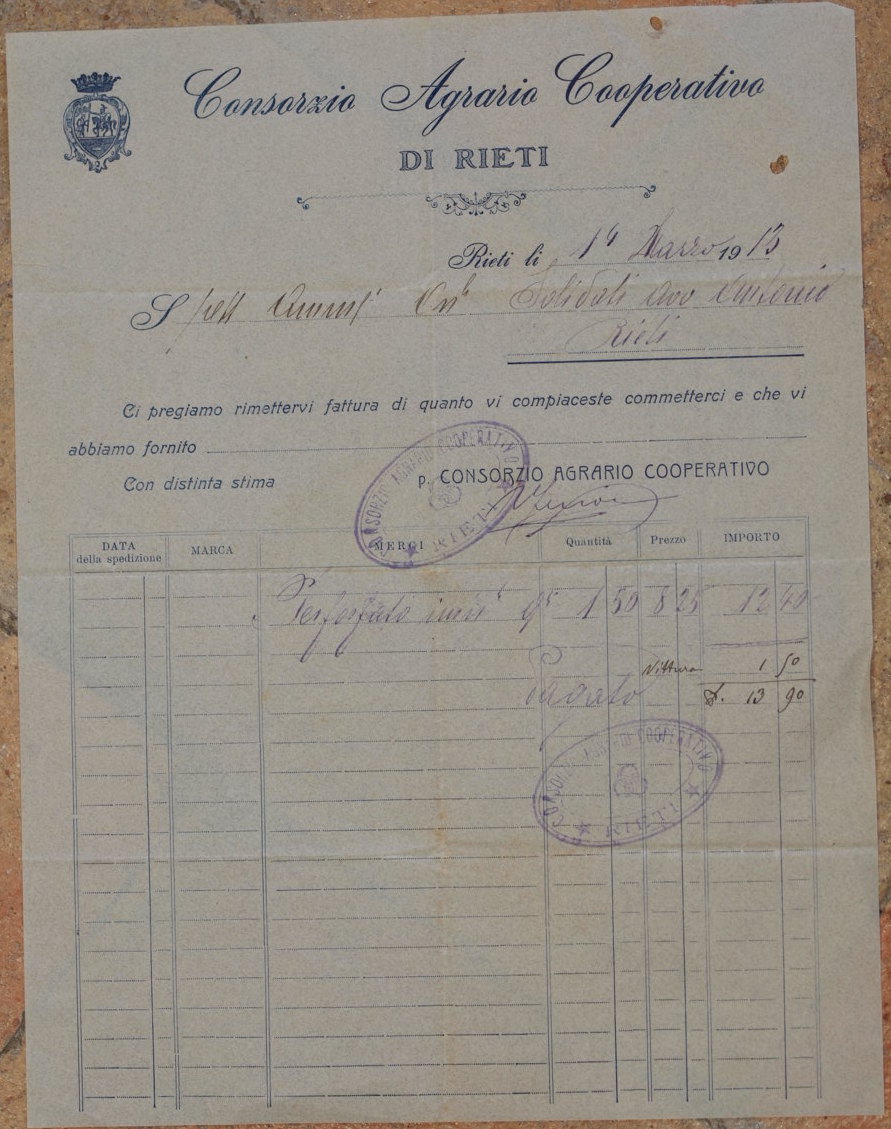 Consorzio Agrario Cooperativo
DI RIETI
Rieti li 14 Marzo 1913
Spett Ammi Solidati avv Antonio
Rieti
Ci pregiamo rimettervi fattura di quanto vi compiaceste commetterci e che vi
abbiamo fornito
Con distinta stima p. CONSORZIO AGRARIO COOPERATIVO
CONSORZIO AGRARIO COOPERATIVO
★ RIETI ★
DATA della spedizione MARCA MERCI Quantità Prezzo IMPORTO
Perfosfato 1 50 8 25 12 40
Vittura 1 50
Pagato 13 90
CONSORZIO AGRARIO COOPERATIVO
★ RIETI ★